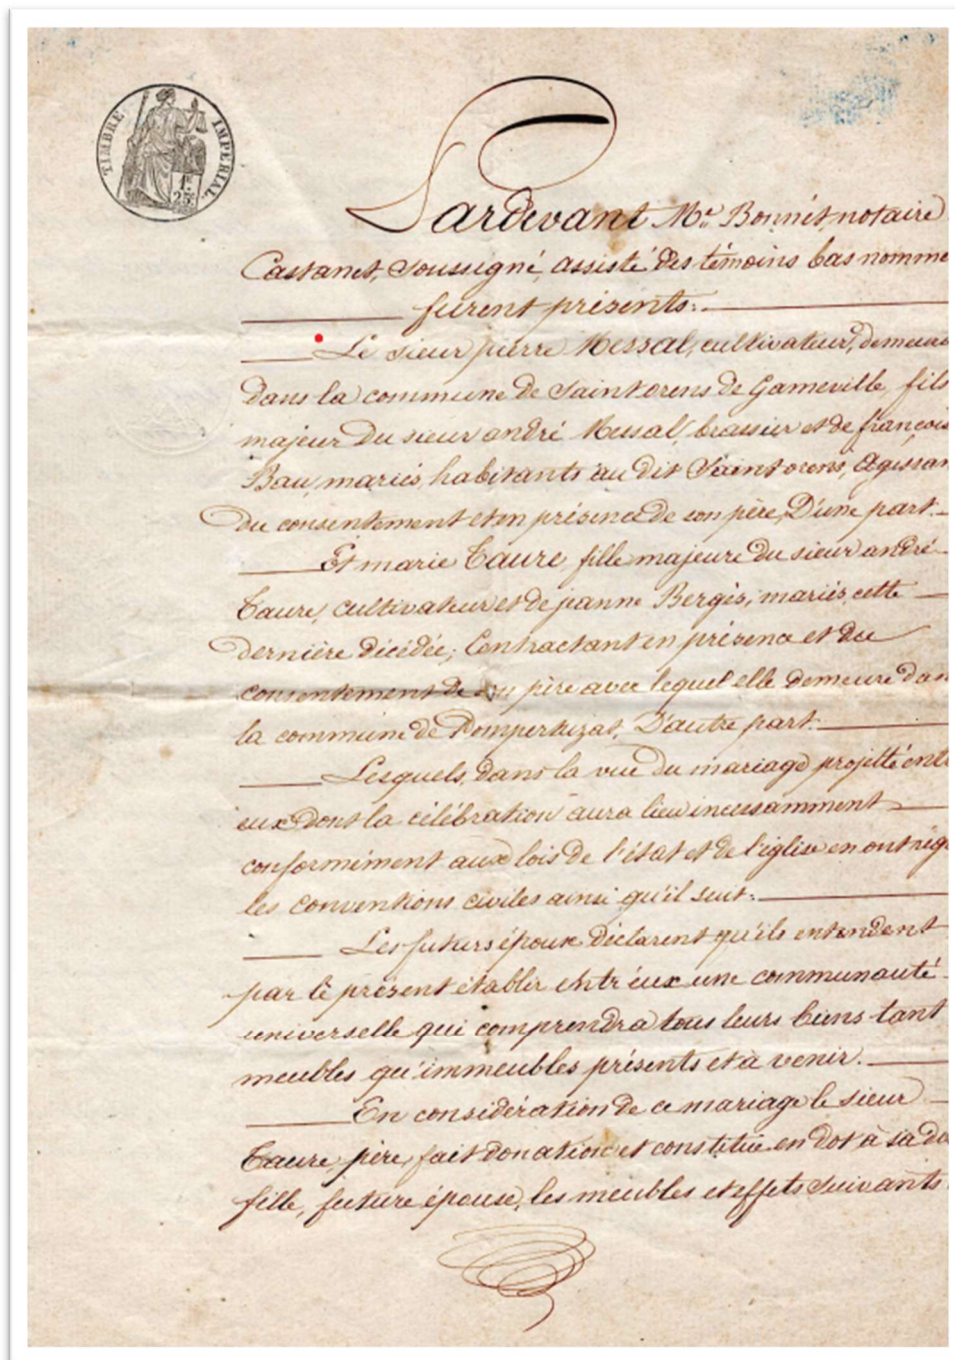 TIMBRE IMPERIAL
1f
25c
Pardevant Me Bonnet, notaire
Castanet, soussigné, assisté des témoins bas nommé
furent présents:
Le sieur pierre Messal, cultivateur, demeura
dans la commune de Saint orens de Gameville, fils
majeur du sieur andré Messal, brassier et de françois
Bau, mariés, habitants au dit Saint orens, Agissan
du consentement et en présence de son père, D'une part.
Et marie Taure fille majeure du sieur andré
Taure, cultivateur et de jeanne Bergès, mariés, cette
dernière décédée; Contractant en présence et du
consentement de son père avec lequel elle demeure dan
la commune de Pompertuzat, D'autre part.
Lesquels, dans la vue du mariage projetté ent
eux dont la célébration aura lieu incessamment
conformément aux lois de l'état et de l'église en ont rég
les conventions civiles ainsi qu'il suit:
Les futurs époux déclarent qu'ils entendent
par le présent établir entr'eux une communauté
universelle qui comprendra tous leurs biens tant
meubles qu'immeubles présents et à venir.
En considération de ce mariage le sieur
Taure, père, fait donation et constitue en dot à sa de
fille, future épouse, les meubles et effets suivants